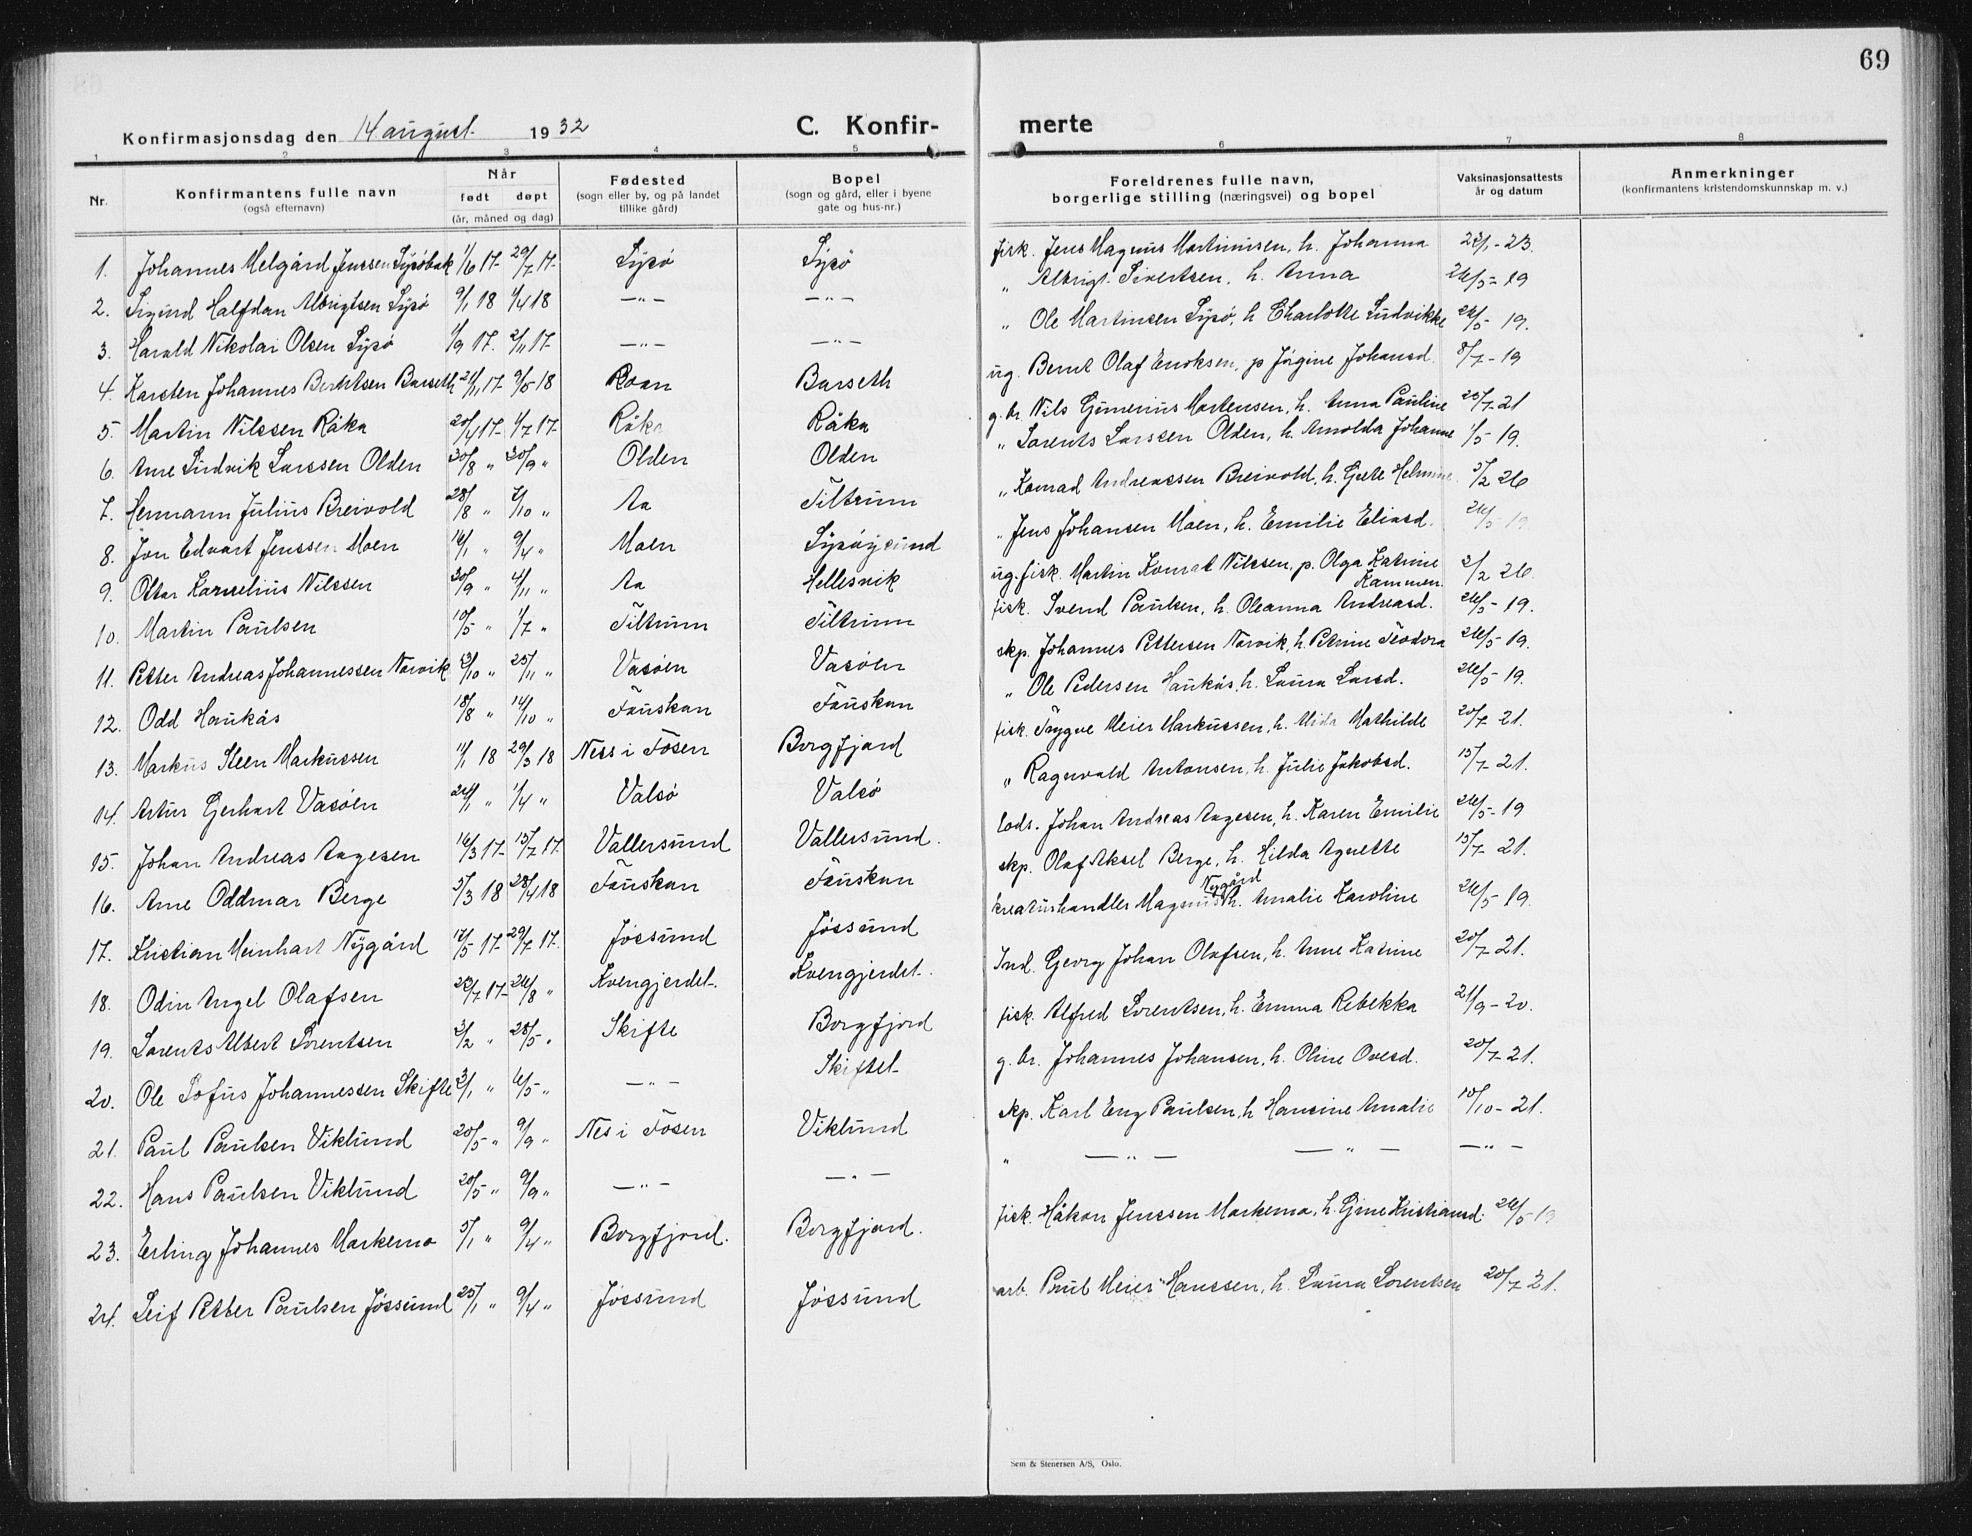 69
Konfirmasjonsdag den 14 august 1932 C. Konfir-merte
1 2 3 4 5 6 7 8
Nr. Konfirmantens fulle navn (også efternavn) Når født døpt (år, måned og dag) Fødested (sogn eller by, og på landet tillike gård) Bopel (sogn og gård, eller i byene gate og hus-nr.) Foreldrenes fulle navn, borgerlige stilling (næringsvei) og bopel Vaksinasjonsattests år og datum Anmerkninger (konfirmantens kristendomskunnskap m. v.)
1. Johannes Melgård Jenssen Lysøbak 1/6 17- 29/7 17- Lysø Lysø fisk. Jens Magnus Martinusen, h. Johanna 22/1-23.
2. Sigurd Halfdan Albrigtsen Lysø 9/1 18 1/4 18 —"— —"— " Albrigt Sivertsen, h. Anna 26/5-19
3. Harald Nikolai Olsen Lysø 1/9 17. 2/11 17- —"— —"— " Ole Martinsen Lysø, h Charlotte Ludvikke 26/5-19.
4. Karsten Johannes Berntsen Barseth 21/11 17- 9/5 18 Roan Barseth ug. Bernt Olaf Enoksen, p Jørgine Johansd. 8/7-19
5. Martin Nilssen Råka 20/4 17- 1/7 17- Råka Råka g. br. Nils Gumerius Mortensen, h. Anna Pauline 20/7-21
6. Arne Ludvik Larssen Olden 30/8 " 30/9 " Olden Olden " Lorents Larssen Olden, h. Arnolda Johanne 1/5-19.
7. Hermann Julius Breivold 28/8 " 7/10 " Aa Tiltrum " Konrad Andreassen Breivold, h. Grete Helmine 5/2 26
8. Jon Edvart Jenssen Moen 16/1 " 9/4 " Moen Lysøysund " Jens Johansen Moen, h. Emilie Eliasd. 26/5 19.
9. Ottar Kornelius Nilssen 30/9 " 4/11 " Aa Hellesvik ug. fisk. Martin Konrat Nilssen, p. Olga Katrine Kammen. 2/2 26.
10. Martin Paulsen 10/5 " 1/7 " Tiltrum Tiltrum fisk. Svend Paulsen, h. Oleanna Andreasd. 26/5-19.
11. Petter Andreas Johannessen Narvik 2/10 " 25/11 " Vasøen Vasøen skp. Johannes Pettersen Narvik, h. Petrine Teodora 26/5-19.
12. Odd Haukås 18/8 " 14/10 " Fauskan Fauskan " Ole Pedersen Haukås, h. Laura Larsd. 26/5-19.
13. Markus Steen Markussen 11/1 18 29/3 18 Ness i Fosen Borgfjord fisk. Trygve Meier Markussen, h. Mida Mathilde 20/7 21.
14. Artur Gerhart Vasøen 24/1 " 1/4 " Valsø Valsø " Ragnvald Antonsen, h. Julie Jakobsd. 15/7-21.
15. Johan Andreas Aagesen 16/3 17- 15/7 17. Vallersund Vallersund. lods. Johan Andreas Aagesen, h. Karen Emilie 26/5-19
16. Arne Oddmar Berge 5/3 18 28/4 18 Fauskan Fauskan skp. Olaf Aksel Berge, h. Hilda Agnette 15/7-21.
17. Kristian Meinhart Nygård 17/5 17- 29/7 17. Jøssund Jøssund kreaturhandler Magnus Nygård h. Amalie Karoline 26/5-19.
18. Odin Angel Olafsen 22/7 17- 26/8 " Kvengjerdet. Kvengjerdet. Ind. Georg Johan Olafsen, h. Anne Katrine 20/7-21.
19. Lorents Albert Lorentsen 2/2 " 28/5 " Skifte Borgfjord fisk. Alfred Lorentsen, h. Emma Rebekka 21/9-20.
20. Ole Sofus Johannessen Skifte 3/1 " 6/5 " —"— Skiftet g. br. Johannes Johansen, h. Oline Ovesd. 20/7-21.
21. Paul Paulsen Viklund 20/5 " 9/9 " Nes i Fosen Viklund skp. Karl Eng Paulsen, h Hansine Amalie 10/10-21.
22. Hans Paulsen Viklund 20/5 " 9/9 " —"— —"— " —"— —"— —"—
23. Erling Johannes Markemo 5/1 " 9/4 " Borgfjord. Borgfjord. fisk. Håkon Jenssen Markemo, h. Gine Kristiansd. 26/5-19
24. Leif Petter Paulsen Jøssund 25/1 " 9/4 " Jøssund Jøssund arb. Paul Meier Hanssen, h. Laura Lorentsen 20/7 21.
Sem & Stenersen A/S, Oslo.